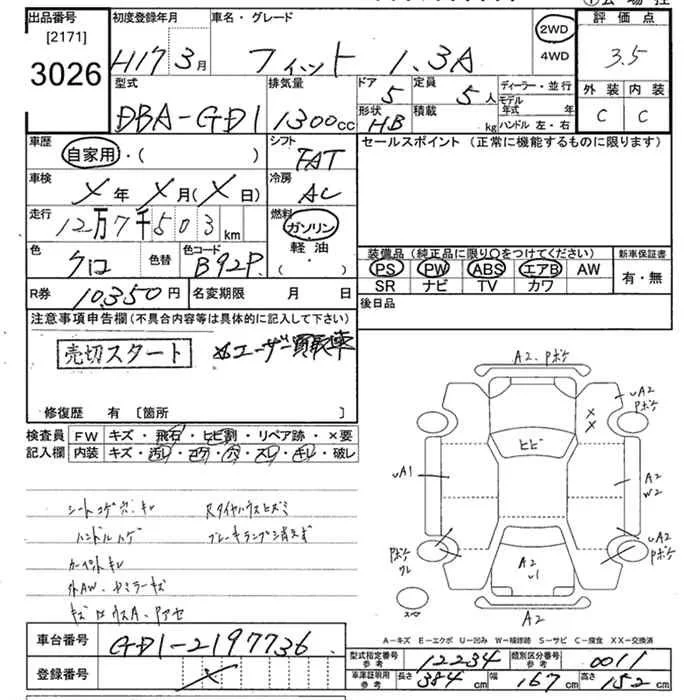 出品番号
[2171]
3026
初度登録年月
H17 3月
車名・グレード
フィット 1.3A
2WD
4WD
評価点
3.5
外装 内装
C C
型式
DBA-GD1
排気量
1300cc
ドア
5
定員
5人
形状
HB
積載
kg
ディーラー・並行
モデル年式 年
ハンドル 左・右
車歴
自家用・( )
シフト
FAT
車検
X年 X月(X日)
冷房
AC
走行
12万7千503km
燃料
ガソリン
軽油
( ・ )
色
クロ
色替
色コード
B92P
R券 10350円
名変期限 月 日
セールスポイント (正常に機能するものに限ります)
装備品(純正品に限り○をつけてください)
PS PW ABS エアB AW
SR ナビ TV カワ
新車保証書
有・無
後日品
注意事項申告欄(不具合内容等は具体的に記入して下さい)
売切スタート
※ユーザー買取車
修復歴 有 [箇所 ]
検査員記入欄
FW キズ・飛石・ヒビ割・リペア跡・×要
内装 キズ・汚レ・コゲ・穴・スレ・キレ・破レ
シートコゲ穴・キレ
Rタイヤハウスヒズミ
ハンドルハゲ
カーペットキレ
A2、Pボケ
uA2
Pボケ
ヒビ
uA1
A2
W2
uA2
Pボケ
Pボケ
A2
u1
A2
A-キズ E-エクボ U-凹み W-補修跡 S-サビ C-腐食 XX-交換済
車台番号 GD1-2197736
登録番号
型式指定番号 参考 12234
類別区分番号 参考 0011
車庫証明用 参考 長さ 384cm 幅 167cm 高さ 152cm